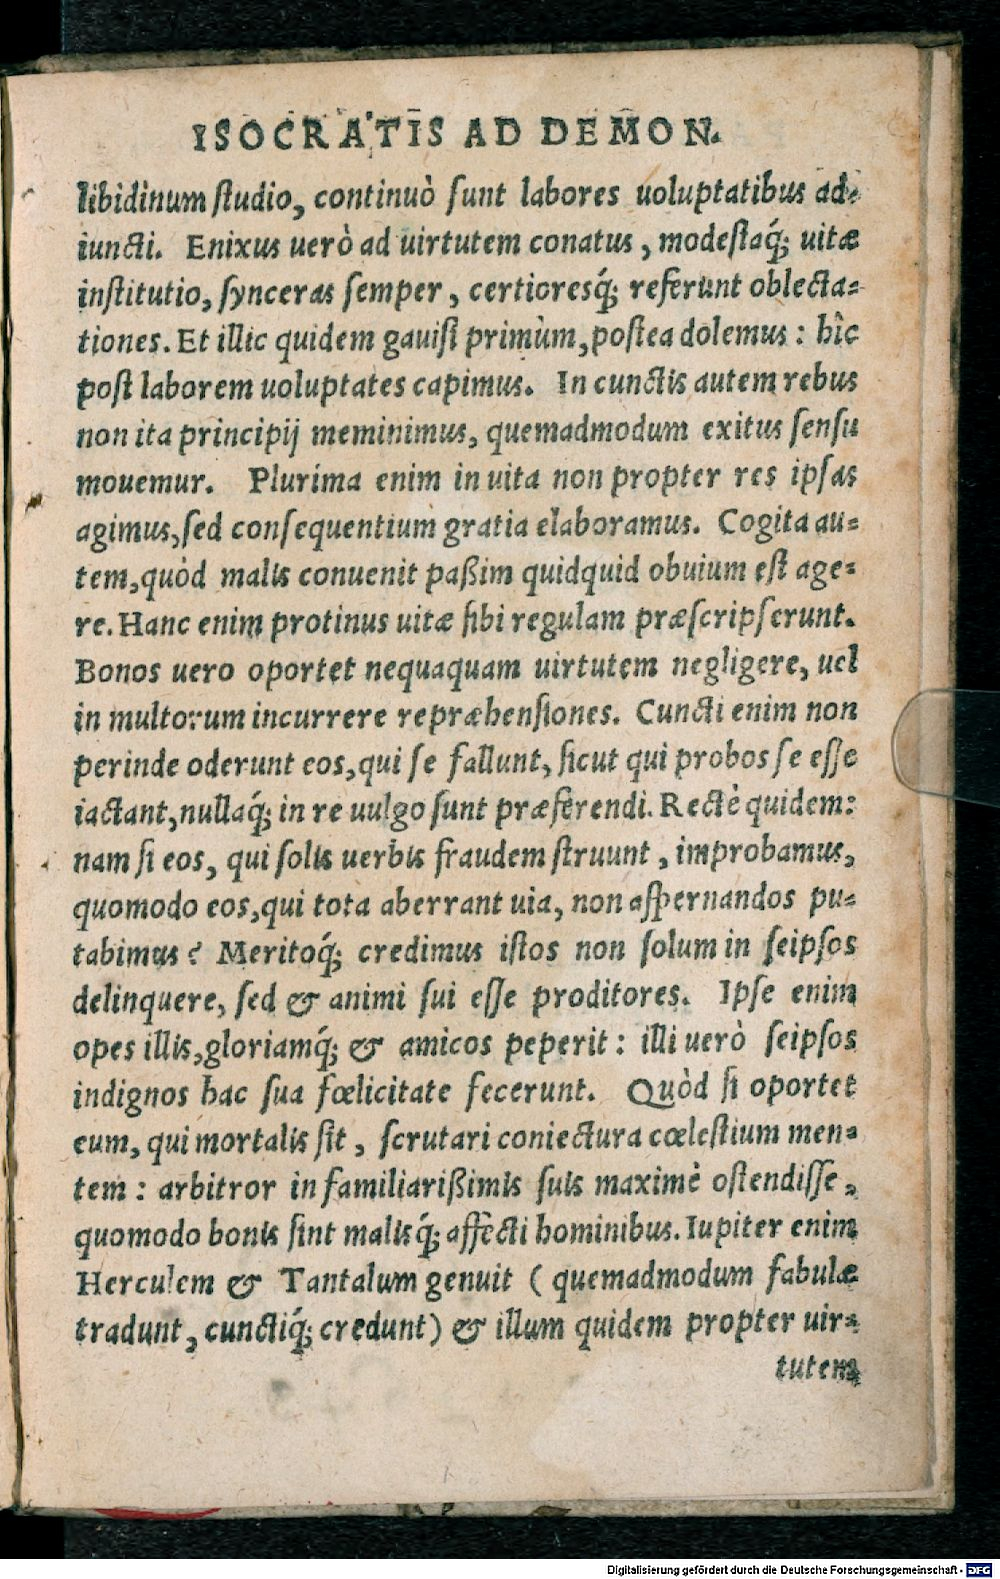 ISOCRATIS AD DEMON.
libidinum studio, continuò sunt labores uoluptatibus ad-
iuncti. Enixus uerò ad uirtutem conatus, modestaq́; uitæ
institutio, synceras semper, certioresq́; referunt oblecta-
tiones. Et illic quidem gauisi primùm, postea dolemus: hîc
post laborem uoluptates capimus. In cunctis autem rebus
non ita principij meminimus, quemadmodum exitus sensu
mouemur. Plurima enim in uita non propter res ipsas
agimus, sed consequentium gratia elaboramus. Cogita au-
tem, quòd malis conuenit paßim quidquid obuium est age-
re. Hanc enim protinus uitæ sibi regulam præscripserunt.
Bonos uero oportet nequaquam uirtutem negligere, uel
in multorum incurrere repræhensiones. Cuncti enim non
perinde oderunt eos, qui se fallunt, sicut qui probos se esse
iactant, nullaq́; in re uulgo sunt præferendi. Rectè quidem:
nam si eos, qui solis uerbis fraudem struunt, improbamus,
quomodo eos, qui tota aberrant uia, non aspernandos pu-
tabimus? Meritoq́; credimus istos non solum in seipsos
delinquere, sed & animi sui esse proditores. Ipse enim
opes illis, gloriamq́; & amicos peperit: illi uerò seipsos
indignos hac sua fœlicitate fecerunt. Quòd si oportet
eum, qui mortalis sit, scrutari coniectura cœlestium men-
tem: arbitror in familiarißimis suis maximè ostendisse,
quomodo bonis sint malisq́; affecti hominibus. Iupiter enim
Herculem & Tantalum genuit (quemadmodum fabulæ
tradunt, cunctiq́; credunt) & illum quidem propter uir-
tutem
Digitalisierung gefördert durch die Deutsche Forschungsgemeinschaft - DFG